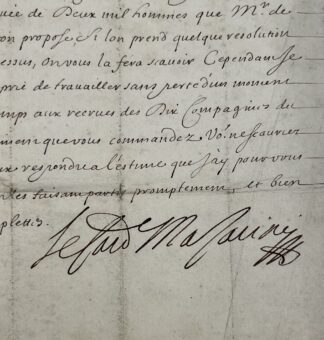 uée de Deux mil hommes que Mr. de
on propose, Si lon prend quelque resolution
essus, on vous la fera sçavoir Cependant Je
prié de travailler sans perte d'un moment
mps aux recrues des Dix Compagnies du
iment que vous commandez, Vo. ne sçauriez
ux respondre a l'estime que J'ay pour vous
n les faisant partir promptement, et bien
plettes.
Le Card. Mazarini